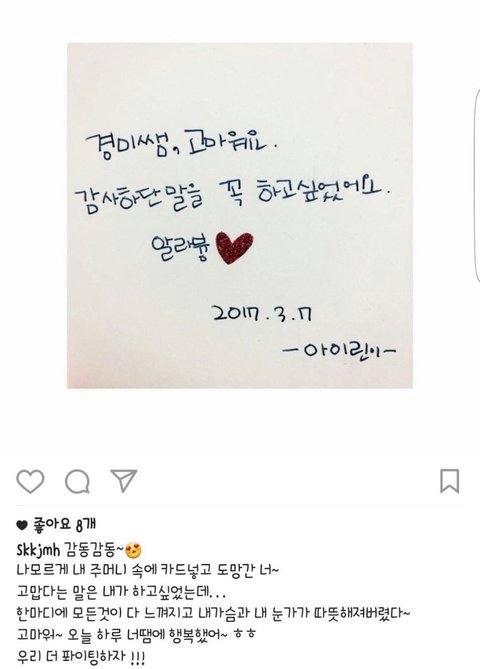 경미쌤, 고마워요.
감사하단 말을 꼭 하고싶었어요.
알라뷰
2017.3.7
-아이린이-
좋아요 8개
skkjmh 감동감동~😍
나모르게 내 주머니 속에 카드넣고 도망간 너~
고맙다는 말은 내가 하고싶었는데...
한마디에 모든것이 다 느껴지고 내가슴과 내 눈가가 따뜻해져버렸다~
고마워~ 오늘 하루 너땜에 행복했어~ ㅎㅎ
우리 더 퐈이팅하자 !!!